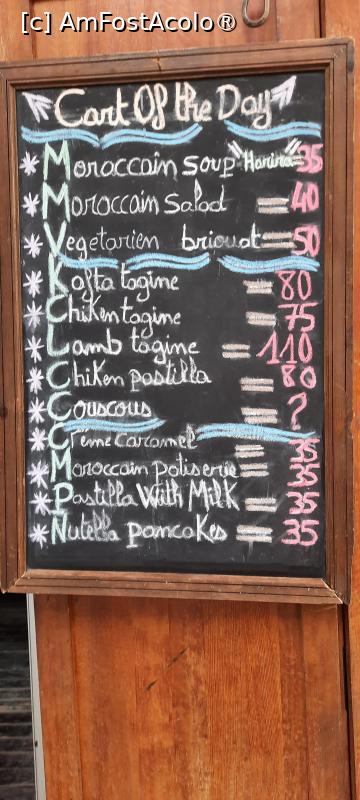 [c] AmFostAcolo®
Cart Of the Day
* Moroccain soup "Harira" = 35
* Moroccain Salad = 40
* Vegetarien briouat = 50
* Kafta tagine = 80
* Chiken tagine = 75
* Lamb tagine = 110
* Chiken pastilla = 80
* Couscous = ?
* Creme Caramel = 35
* Moroccain patiserie = 35
* Pastilla With Milk = 35
* Nutella pancakes = 35